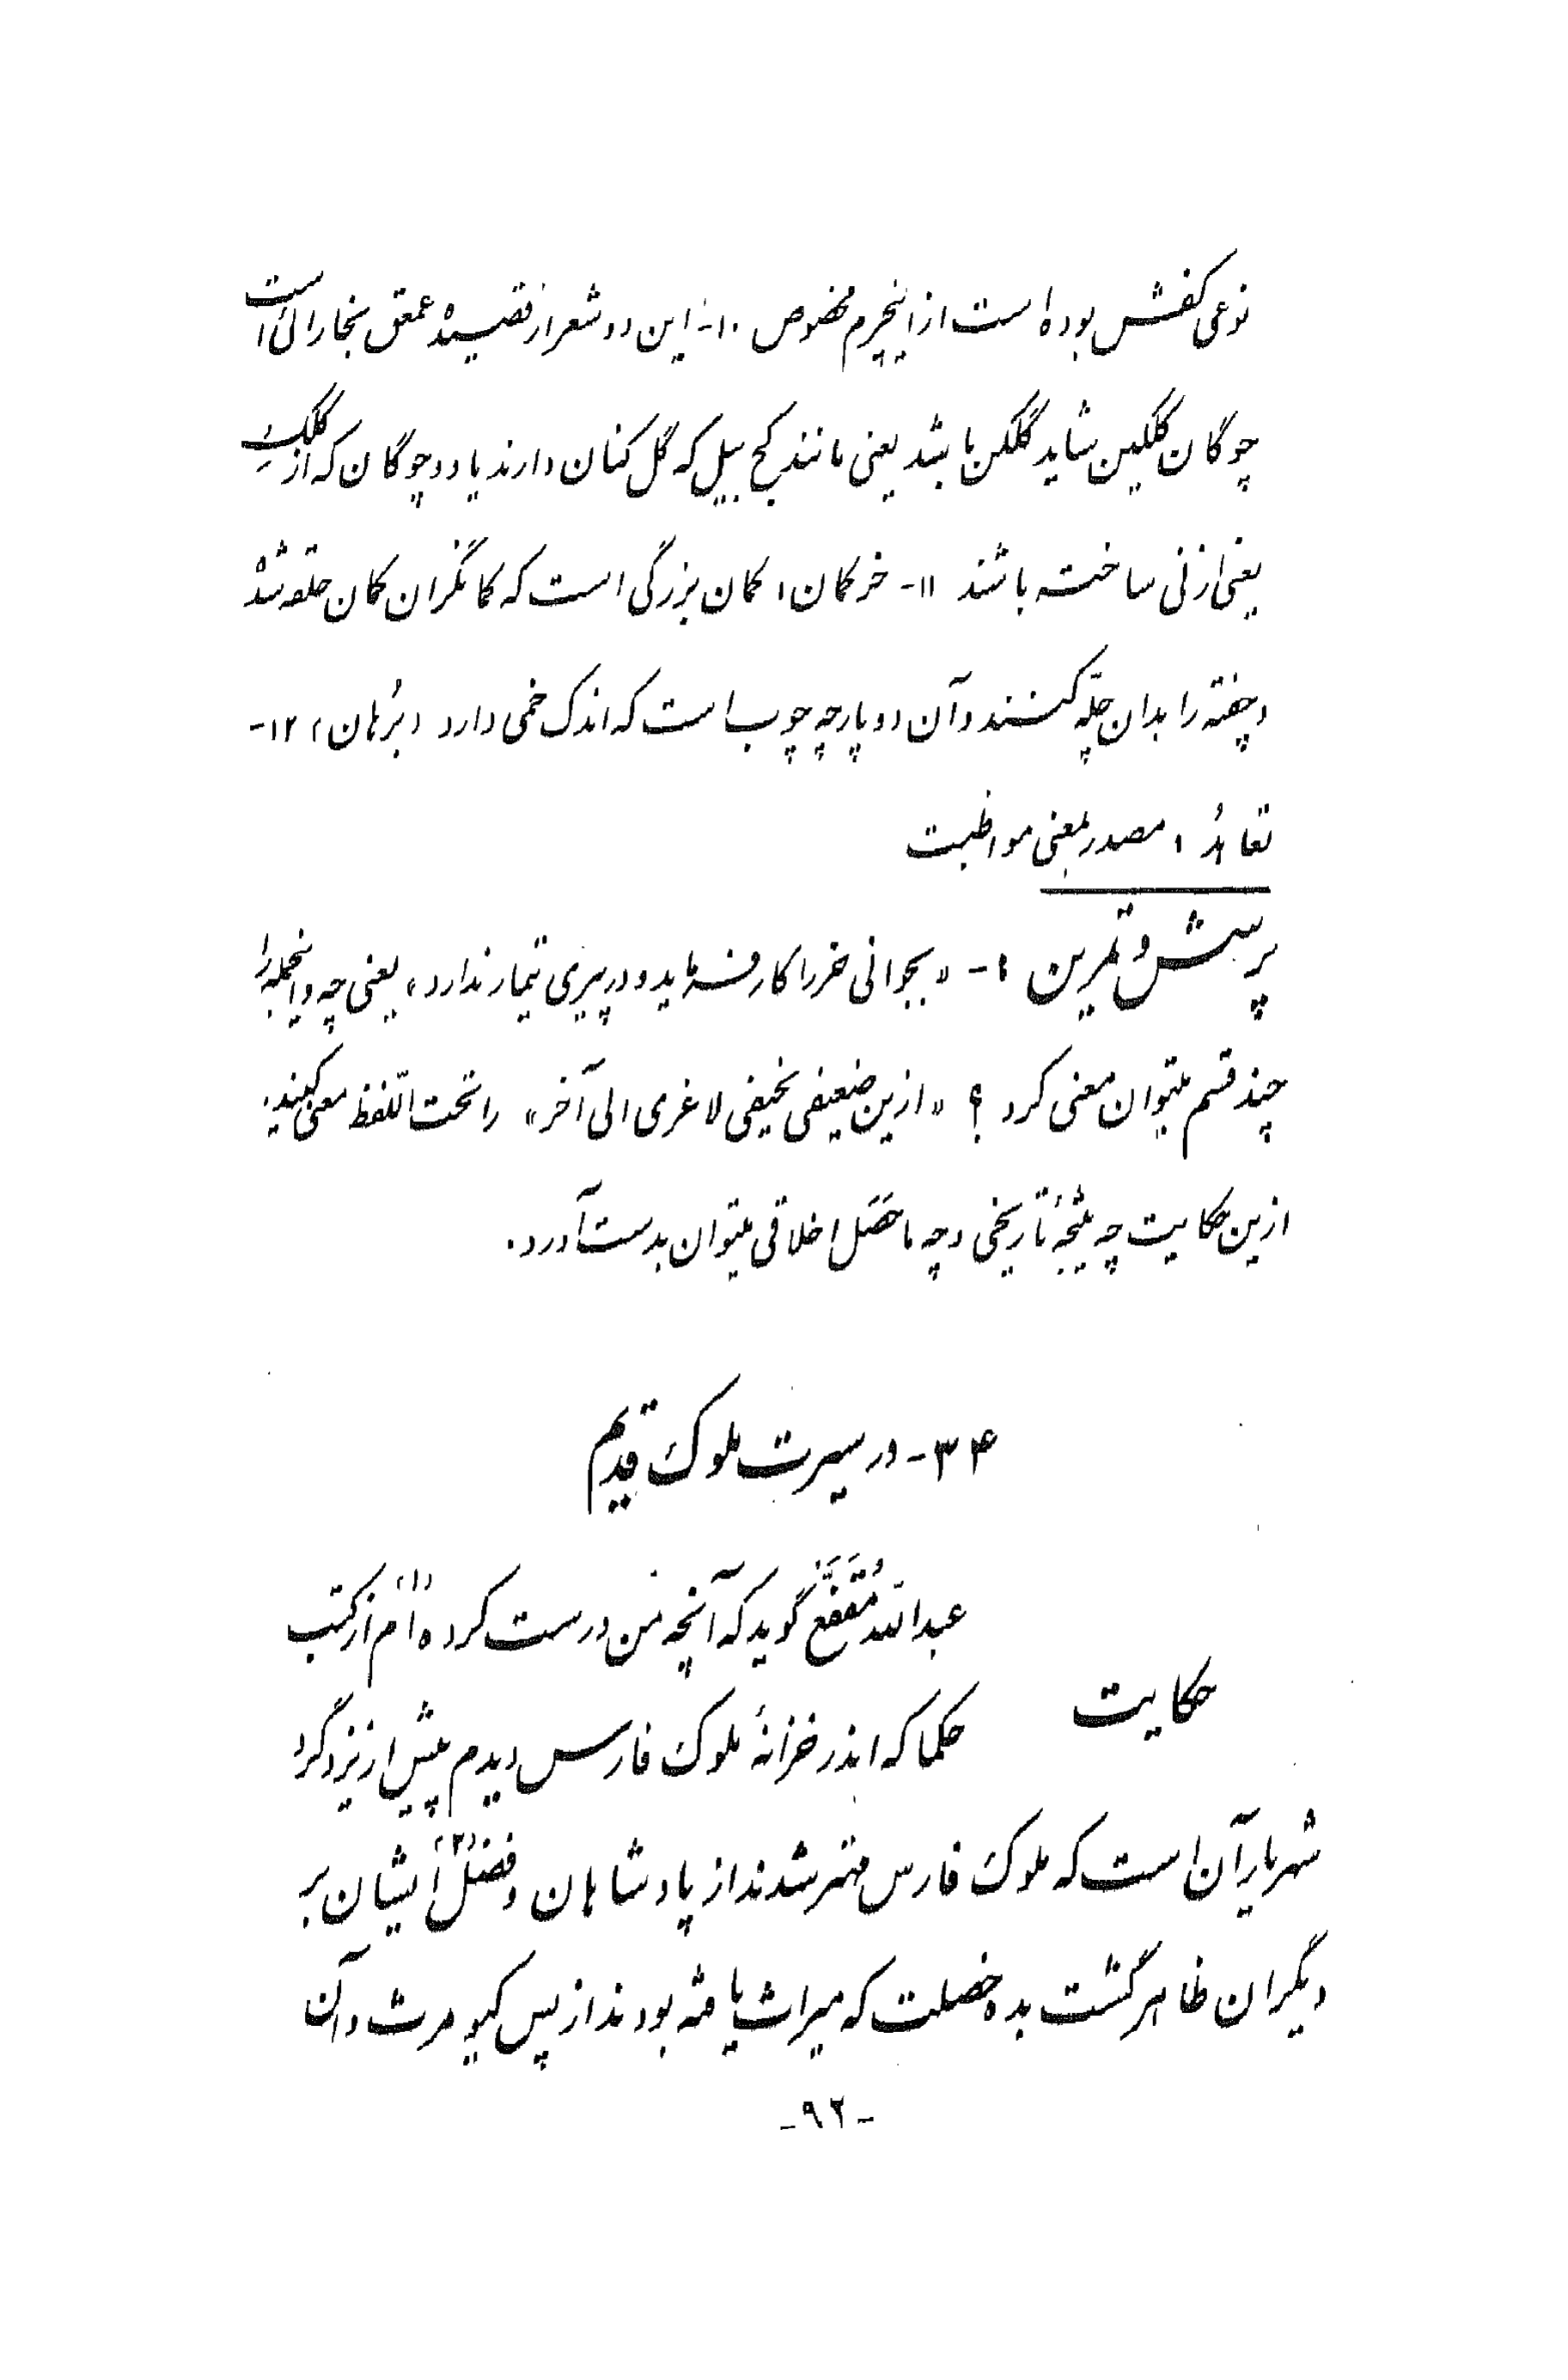 نوعی کفش بوده است از اینچرم مخصوص ۱۰- این دو شعر از قصیدهٔ عمعق بخارائی است
چوگان گلکین شاید گلکن باشد یعنی مانند کج بیل که گل کنان دارند یا دو چوگان که از کلک
یعنی از نی ساخته باشند ۱۱- خرکمان، کمان بزرگی است که کمانگران کمان حلقه شده
و چفته را بدان چلّه کنند و آن دو پارچه چوب است که اندک خمی دارد (بُرهان) ۱۲-
تعاهُد، مصدر بمعنی مواظبت
پرسش و تمرین ؛- «بجوانی خر را کار فرماید و در پیری تیمار ندارد» یعنی چه و اینجمله را
چند قسم میتوان معنی کرد ؟ «ازین ضعیفی نحیفی لاغری الی آخر» را تحت اللّفظ معنی کنید.
ازین حکایت چه نتیجهٔ تاریخی و چه ماحَصَل اخلاقی میتوان بدست آورد.
۳۴- در سیرت ملوک قدیم
عبدالله مُقَفَّع گوید که آنچه من درست کرده‌ام(۱) از کتب
حکایت
حکما که اندر خزانهٔ ملوک فارس دیدم پیش از یزدگرد
شهریار آن است که ملوک فارس مهتر شدند از پادشاهان و فضل(۲) ایشان بر
دیگران ظاهر گشت بده خصلت که میراث یافته بودند از پس کیومرث و آن
-۹۲-